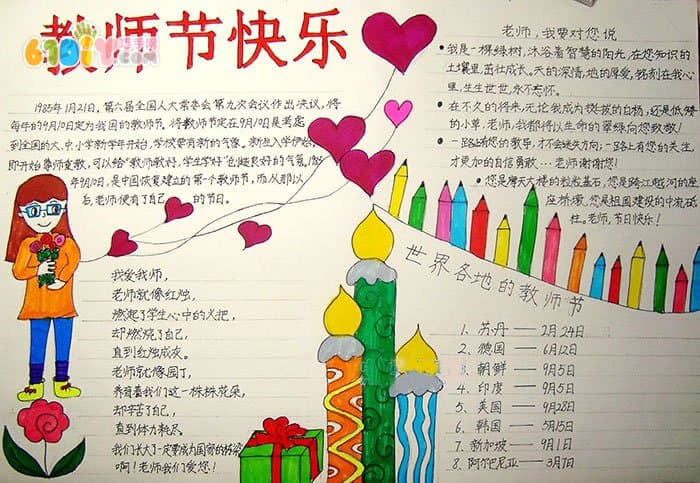 教师节快乐
61DIY.COM
1985年1月21日,第六届全国人大常委会第九次会议作出决议,将
每年的9月10日定为我国的教师节。将教师节定在9月10日是考虑
到全国的大、中、小学新学年开始,学校要有新的气象。新生入学伊始,
即开始尊师重教,可以给"教师教好,学生学好"创造良好的气氛。
年9月10日,是中国恢复建立的第一个教师节,而从那以
后,老师便有了自己的节日。
老师,我要对您说
我是一棵绿树,沐浴着智慧的阳光,在您知识的
土壤里,茁壮成长。天的深情,地的厚爱,铭刻在我心
里,生生世世,永不忘怀。
在不久的将来,无论我成为挺拔的白杨,还是低矮
的小草,老师,我都将以生命的翠绿向您致敬!
一路上有您的教导,才不会迷失方向;一路上有您的关注
才更加的自信勇敢……老师谢谢您!
您是摩天大楼的粒粒基石,您是跨江越河的座
座桥墩,您是祖国建设的中流砥
柱。老师,节日快乐!
我爱我师,
老师就像红烛,
燃起了学生心中的火把,
却燃烧了自己,
直到红烛成灰。
老师就像园丁,
养育着我们这一株株花朵,
却辛苦了自己,
直到体力耗尽
我们长大了一定要成为国家的栋梁
啊!老师我们爱您!
世界各地的教师节
1、苏丹——2月24日
2、德国——6月12日
3、朝鲜——9月5日
4、印度——9月5日
5、美国——9月28日
6、韩国——5月15日
7、新加坡——9月1日
8、阿尔巴尼亚——3月7日